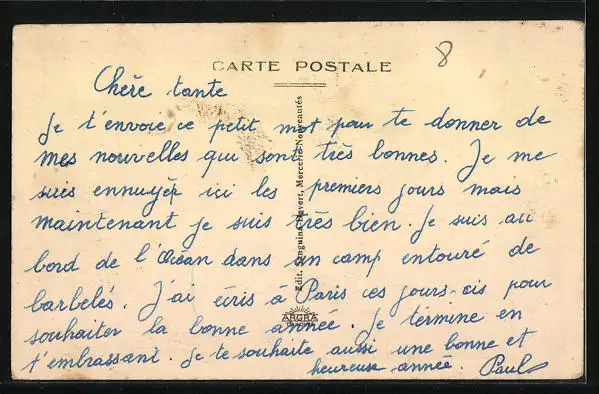 CARTE POSTALE
8
Chère tante
Je t'envoie ce petit mot pour te donner de
mes nouvelles qui sont très bonnes. Je me
suis ennuyér ici les premiers jours mais
maintenant je suis très bien. Je suis au
bord de l'Océan dans un camp entouré de
barbelés. J'ai écris à Paris ces jours-cis pour
souhaiter la bonne année. Je termine en
t'embrassant. Je te souhaite aussi une bonne et
heureuse année. Paul
Edit. Senguina Revert, Mercerie-Nouveautés
ARGRA